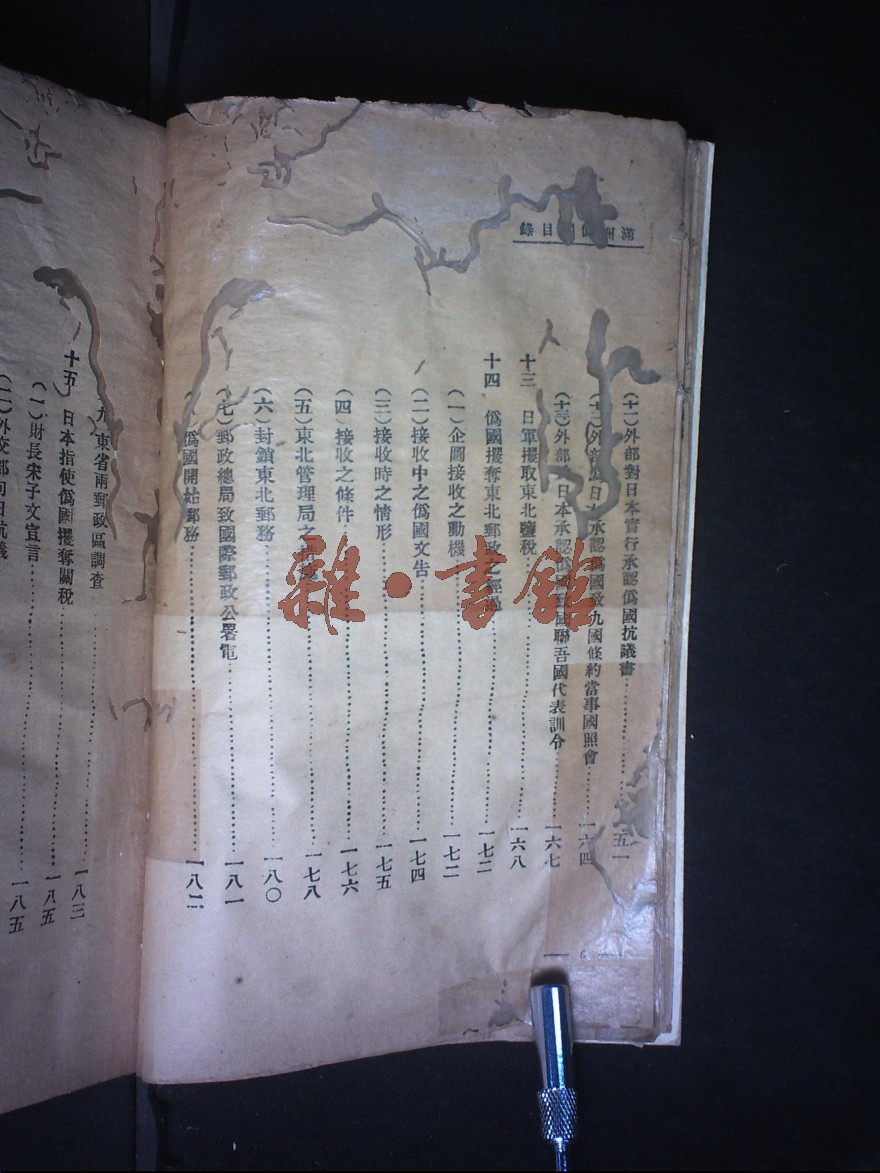 滿洲國目錄
(十一)外部對日本實行承認僞國抗議書 一五一
(十二)外部爲日本承認僞國致九國條約當事國照會 一六四
(十三)外部日本承認僞國致國聯吾國代表訓令 一六七
十三 日軍攫取東北鹽稅 一六八
十四 僞國攫奪東北郵政之經過 一七二
(一)企圖接收之動機 一七二
(二)接收中之僞國文告 一七四
(三)接收時之情形 一七五
(四)接收之條件 一七六
(五)東北管理局之 一七八
(六)封鎖東北郵務 一八〇
(七)郵政總局致國際郵政公署電 一八一
僞國開始郵務 一八二
九 東省兩郵政區調查 一八三
十五 日本指使僞國攫奪關稅 一八五
(一)財長宋子文宣言 一八五
(二)外交部向日抗議
雜·書館